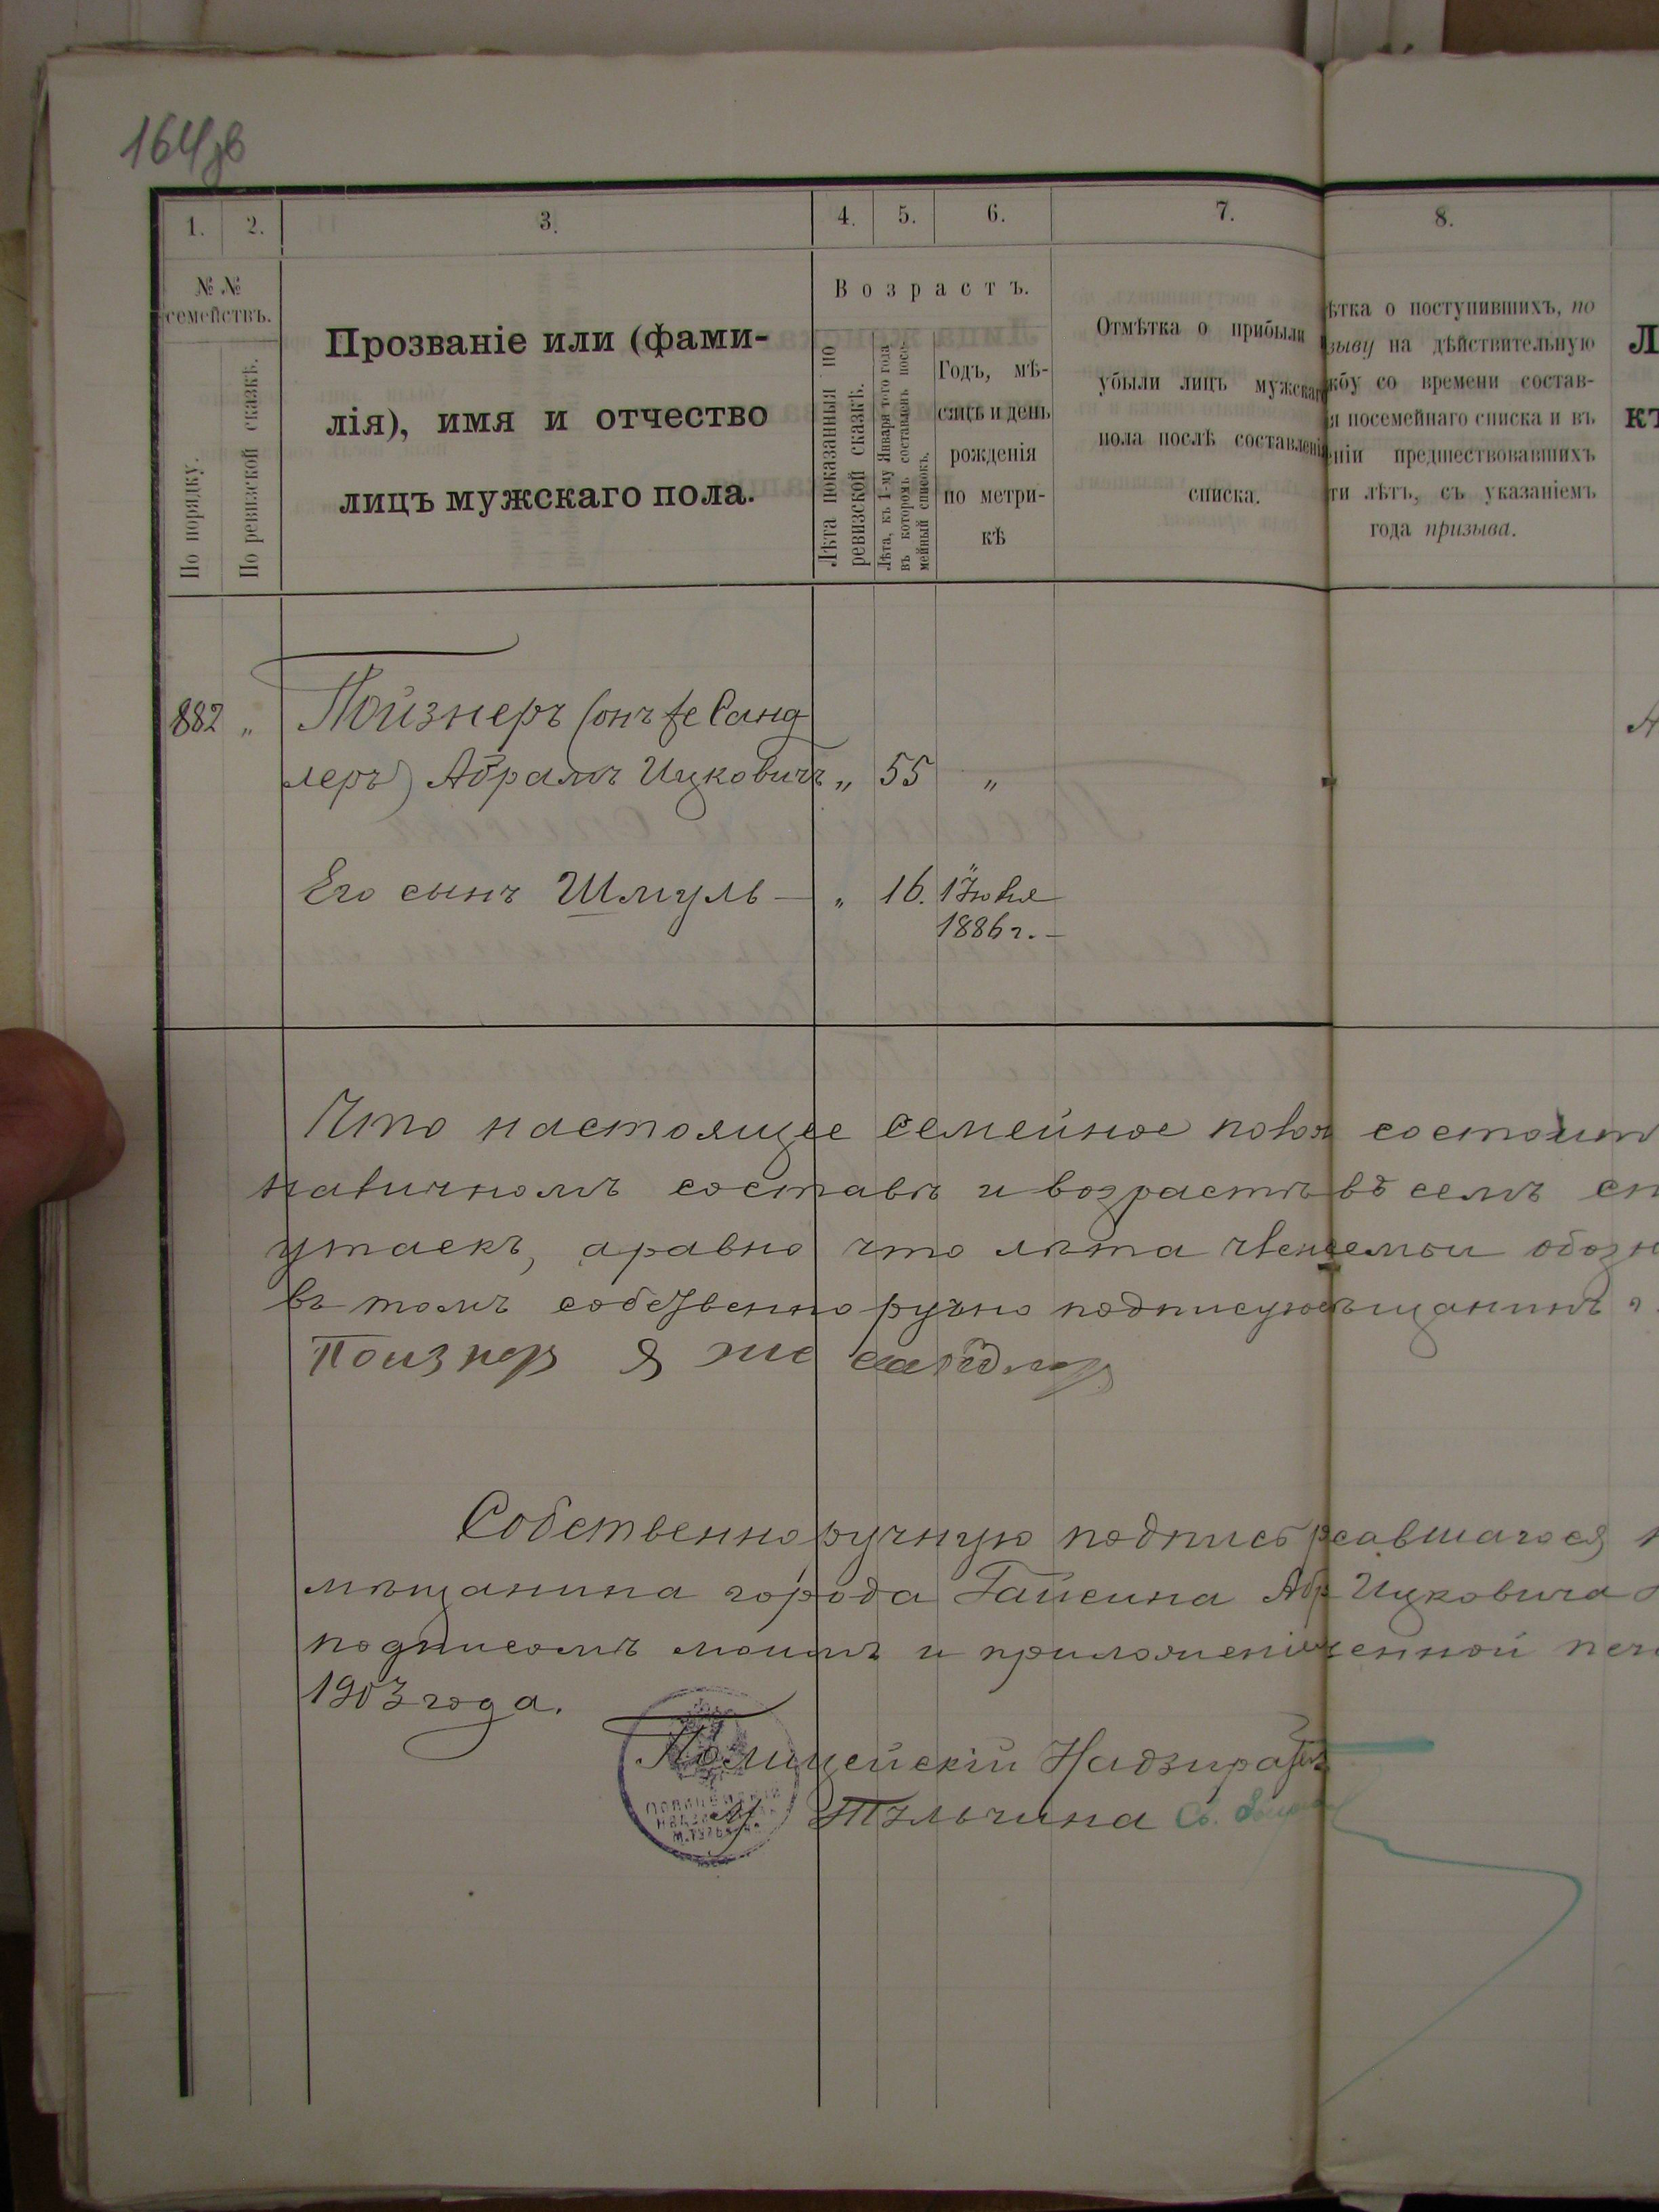 164 об
1. 2. 3. 4. 5. 6. 7. 8.
№ №
семействъ.
По порядку.
По ревизской сказкѣ.
Прозваніе или (фами-
лія), имя и отчество
лицъ мужскаго пола.
Возрастъ.
Лѣта показанныя по
ревизской сказкѣ.
Лѣта, къ 1-му Января того года
въ которомъ составленъ посе-
мейный списокъ.
Годъ, мѣ-
сяцъ и день
рожденія
по метри-
кѣ
Отмѣтка о прибыли
убыли лицъ мужскаго
пола послѣ составленія
списка.
ѣтка о поступившихъ, по
зыву на дѣйствительную
жбу со времени состав-
я посемейнаго списка и въ
еніи предшествовавшихъ
ти лѣтъ, съ указаніемъ
года призыва.
Л
кт
882 " Пойзнеръ (онъ же Санд
леръ) Абрамъ Ицковичъ " 55 "
Его сынъ Шмуль — " 16. 1 Іюля
1886 г. —
Что настоящее семейное полож состоит
наличномъ составѣ и возрастѣ въ семъ сп
утаекъ, а равно что лѣта член семьи обозн
въ томъ собственноручно подписуюсь мѣщанинъ
Поизнер я же сандлер
Собственноручную подпись р савшагося
мѣщанина города Гайсина Абр Ицковича
подписомъ моимъ и приложеніем енной печ
1903 года.
Полицейскій Надзиратель
м. Тульчина
ПОЛИЦЕЙСКІЙ
НАДЗИРАТЕЛЬ
М. ТУЛЬЧИНА